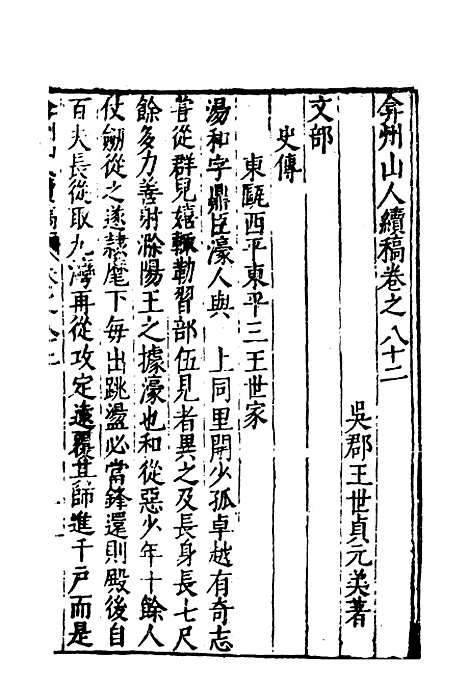 弇州山人續稿卷之八十二
吳郡王世貞元美著
文部
史傳
東甌西平東平三王世家
湯和字鼎臣濠人與 上同里閈少孤卓越有奇志
甞從群兒嬉輙勒習部伍見者異之及長身長七尺
餘多力善射滁陽王之據濠也和從惡少年十餘人
仗劒從之遂隷麾下每出跳盪必當鋒還則殿後自
百夫長從取九灣再從攻定遠覆其師進千戶而是